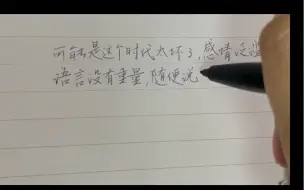 可能是这个时代太坏了,感情没
语言没有重量,随便说